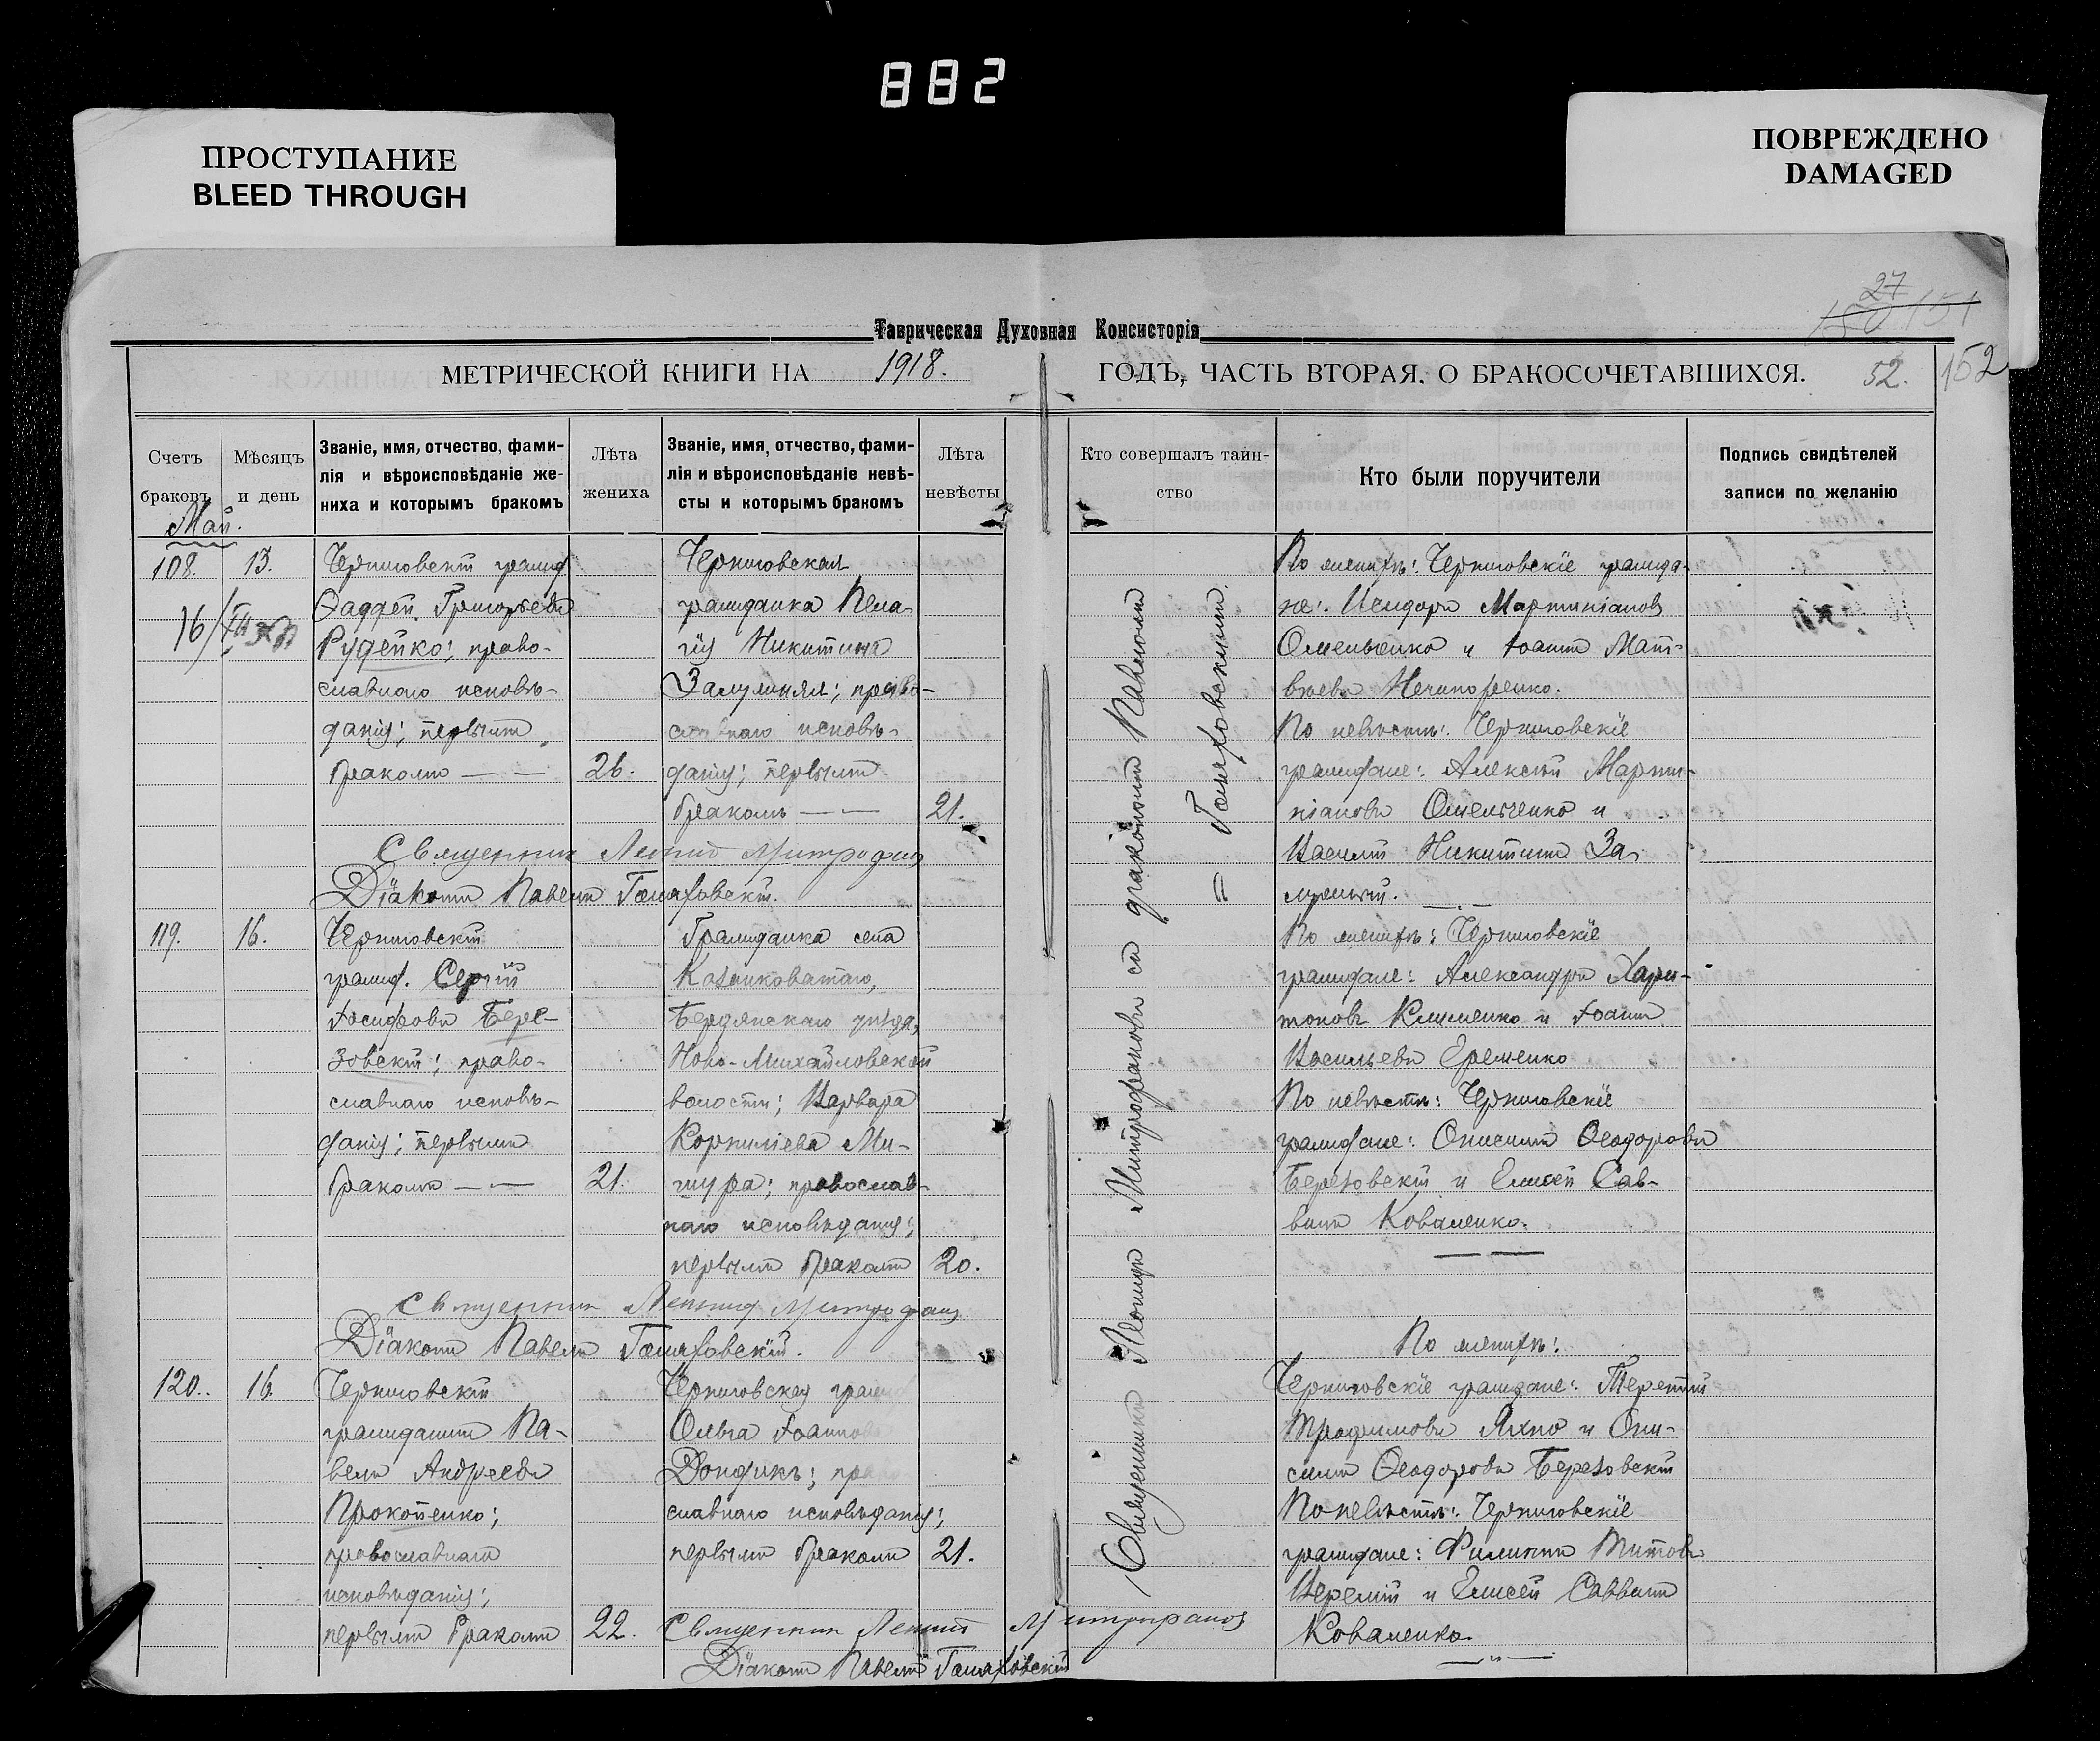 882
ПРОСТУПАНИЕ
BLEED THROUGH
ПОВРЕЖДЕНО
DAMAGED
27
150 151
Таврическая Духовная Консисторія
МЕТРИЧЕСКОЙ КНИГИ НА 1918.
ГОДЪ, ЧАСТЬ ВТОРАЯ. О БРАКОСОЧЕТАВШИХСЯ.
52.
152
Счетъ
браковъ
Мѣсяцъ
и день
Званіе, имя, отчество, фами-
лія и вѣроисповѣданіе же-
ниха и которымъ бракомъ
Лѣта
жениха
Званіе, имя, отчество, фами-
лія и вѣроисповѣданіе невѣ-
сты и которымъ бракомъ
Лѣта
невѣсты
Кто совершалъ таин-
ство
Кто были поручители
Подпись свидѣтелей
записи по желанію
Май.
108.
13.
16/XII
Черниговскій гражд
Фаддей Григорьевъ
Рудейко; право-
славнаго исповѣ-
данія; первымъ
бракомъ — —
26.
Черниговская
гражданка Пела-
гія Никитина
православнаго исповѣ-
данія; первымъ
бракомъ — —
21.
Священникъ Леонид Митрофанов
Діаконъ Павелъ Голяховскій.
По женихѣ: Черниговскіе гражда-
не: Исидоръ Мартиніановъ
Омельченко и Іоаннъ Мат-
вѣевъ Нечипоренко.
По невѣстѣ: Черниговскіе
граждане: Алексѣй Марти-
ніановъ Омельченко и
Василій Никитинъ
119.
16.
Черниговскій
гражд. Сергій
Іосифовъ Бере-
зовскій; право-
славнаго исповѣ-
данія; первымъ
бракомъ — —
21.
Гражданка села
Казанковатаго,
Бердянскаго уѣзда,
Ново-Михайловской
волости; Варвара
Корниліева Ми-
шура; православ-
наго исповѣданія;
первымъ бракомъ
20.
Священник Леонид Митрофанов
Діаконъ Павелъ Голяховскій.
По женихѣ: Черниговскіе
граждане: Александръ Хари-
тоновъ Клименко и Іоаннъ
Васильевъ Еременко
По невѣстѣ: Черниговскіе
граждане: Онисимъ Ѳеодоровъ
Березовскій и Елисей Сав-
винъ Коваленко.
120.
16.
Черниговскій
гражданинъ Па-
велъ Андреевъ
Прокопенко;
православнаго
исповѣданія;
первымъ бракомъ
22.
Черниговская гражд
Ольга Іоаннова
Дондикъ; пра
славнаго исповѣданія;
первымъ бракомъ
21.
Священник Леонид Митрофанов
Діаконъ Павелъ Голяховскій
По женихѣ:
Черниговскіе граждане: Терентій
Трофимовъ Яхно и Они-
симъ Ѳеодоровъ Березовскій
По невѣстѣ: Черниговскіе
граждане: Филиппъ Титовъ
Веремій и Елисей Саввинъ
Коваленко.
Священникъ Леонидъ Митрофановъ съ діакономъ Павломъ
Голяховскимъ.